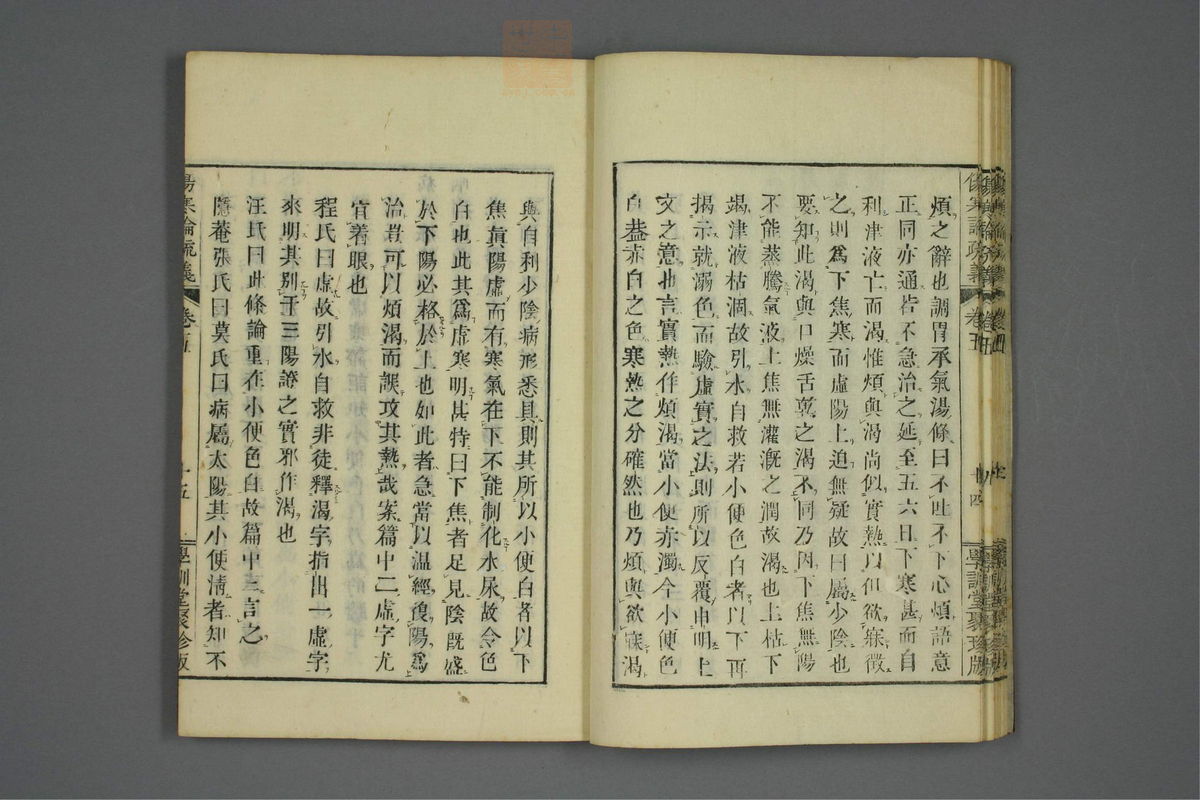 煩之辭也調胃承氣湯條曰不吐不下心煩語意
正同亦通若不急治之延至五六日下寒甚而自
利津液亡而渴惟煩與渴尚似實熱以但欲寐徵
之則爲下焦寒而虛陽上迫無疑故曰屬少陰也
要知此渴與口燥舌乾之渴不同乃因下焦無陽
不能蒸騰氣液上焦無灌漑之潤故渴也上枯下
竭津液枯涸故引水自救若小便色白者以下再
揭示就溺色而驗虛實之法則所以反覆申明上
文之意也言實熱作煩渴當小便赤濁今小便色
白蓋赤白之色寒熱之分確然也乃煩與欲寐渴
與自利少陰病形悉具則其所以小便白者以下
焦眞陽虛而有寒氣在下不能制化水尿故令色
白也此其爲虛寒明甚特曰下焦者足見陰既盛
於下陽必格於上也如此者急當以温經復陽爲
治君可以煩渴而誤攻其熱哉案篇中二虛字尤
宜着眼也
程氏曰虛故引水自救非徒釋渴字指出一虛字
來明其别于三陽證之實邪作渴也
汪氏曰此條論重在小便色白故篇中三言之
隱菴張氏曰莫氏曰病屬太陽其小便淸者知不
傷寒論疏義
卷五
十五
學訓堂聚珍版
傷寒論疏義
卷五
十四
學訓堂聚珍版